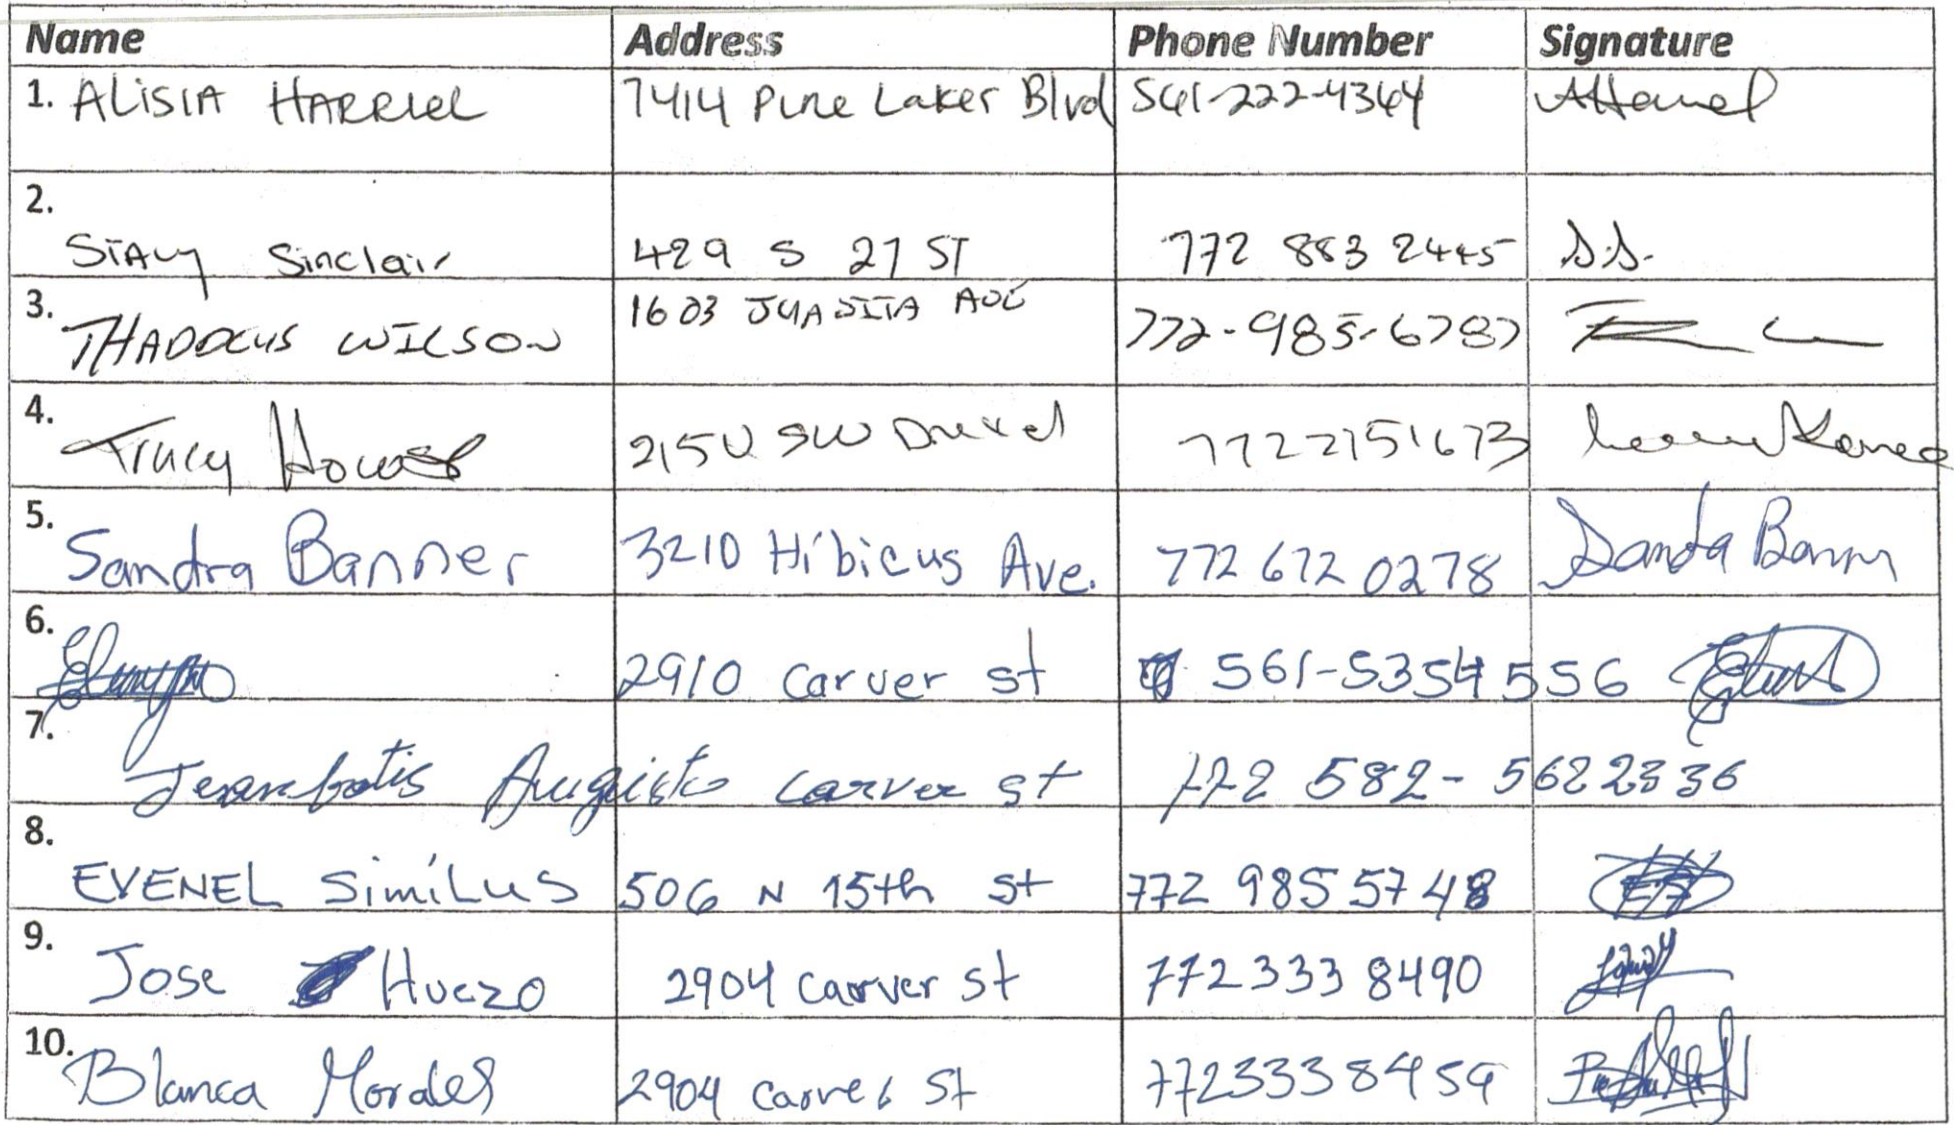 Name Address Phone Number Signature
1. ALISIA HARRIEL 7414 Pine Laker Blvd 561-222-4364
2. STACY Sinclair 429 S 27 ST 772 883 2445 S.S.
3. THADDEUS WILSON 1603 JUANITA AVE 772-985-6787
4. Tracy 2150 SW Drexel 7722151673
5. Sandra Banner 3210 Hibicus Ave. 772 672 0278 Sandra Bann
6. 2910 Carver st 561-5354556
7. Jeanbatis Augusto carver st 772 582-5622336
8. EVENEL SimiLus 506 N 15th st 772 985 5748
9. Jose Huezo 2904 carver st 772 333 8490
10. Blanca Morales 2904 carver St 7723338459